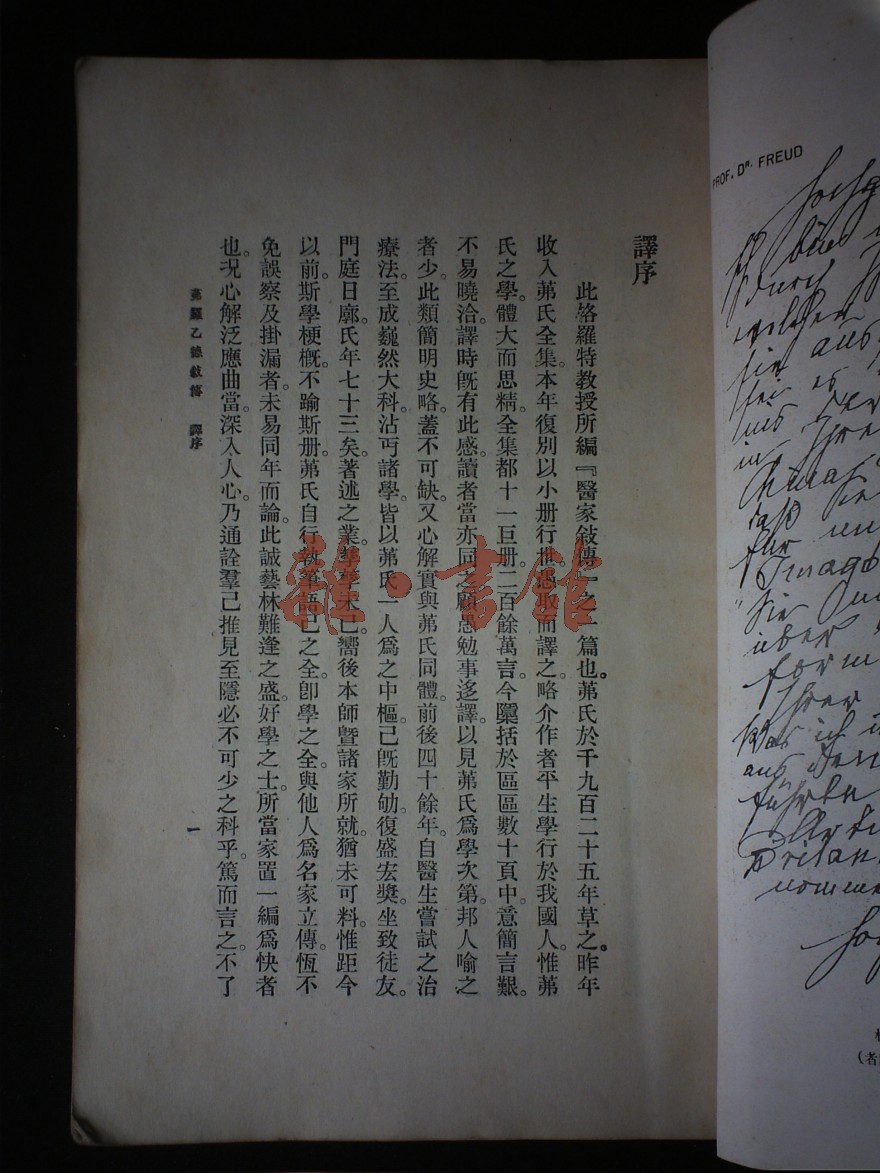 譯序
此辂羅特教授所編『醫家敍傳』之一篇也。茀氏於千九百二十五年草之。昨年
收入茀氏全集。本年復別以小册行推。憑取而譯之。略介作者平生學行於我國人。惟茀
氏之學。體大而思精。全集都十一巨册。二百餘萬言。今檃括於區區數十頁中。意簡言艱。
不易曉洽。譯時旣有此感。讀者當亦同之。顧愚勉事迻譯。以見茀氏爲學次第。邦人喻之
者少。此類簡明史略。蓋不可缺。又心解實與茀氏同體。前後四十餘年。自醫生嘗試之治
療法。至成巍然大科。沾丐諸學。皆以茀氏一人爲之中樞。己旣勤劬。復盛宏奬。坐致徒友。
門庭日廓。氏年七十三矣。著述之業。孳孳未已。嚮後本師曁諸家所就。猶未可料。惟距今
以前。斯學梗槪。不踰斯册。茀氏自行執筆。語己之全。卽學之全。與他人爲名家立傳。恆不
免誤察及掛漏者。未易同年而論。此誠藝林難逢之盛。好學之士。所當家置一編爲快者
也。况心解泛應曲當。深入人心。乃通詮羣己推見至隱必不可少之科乎。篤而言之。不了
茀羅乙德敍傳 譯序
一
PROF. DR. FREUD
durch
welchen
sie aus
sei es
uns der
in Ihrer
China
daß Sie
für un
"Imago
über
form
Ihrer
Was ich i
aus dem
führte
nomme
者)